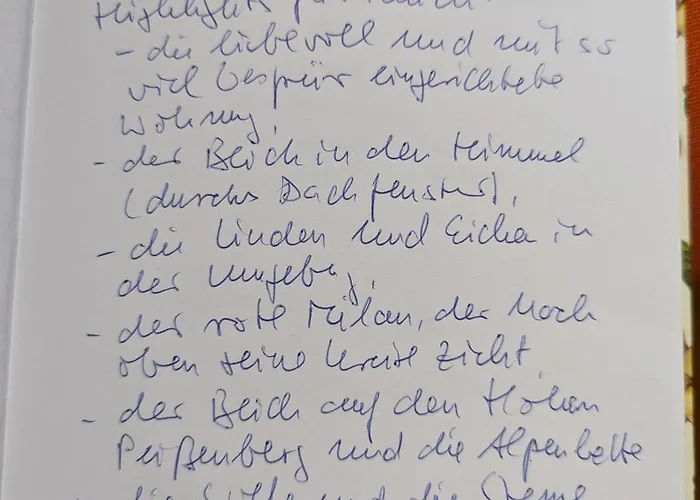 Highlights
- die liebevoll und mit so
viel Gespür eingerichtete
Wohnung,
- der Blick in den Himmel
(durchs Dachfenster),
- die Linden und Eichen in
der Umgebg,
- der rote Milan, der hoch
oben seine Kreise zieht,
- der Blick auf den Hohen
Peißenberg und die Alpenkette
- die Stille und die Sterne